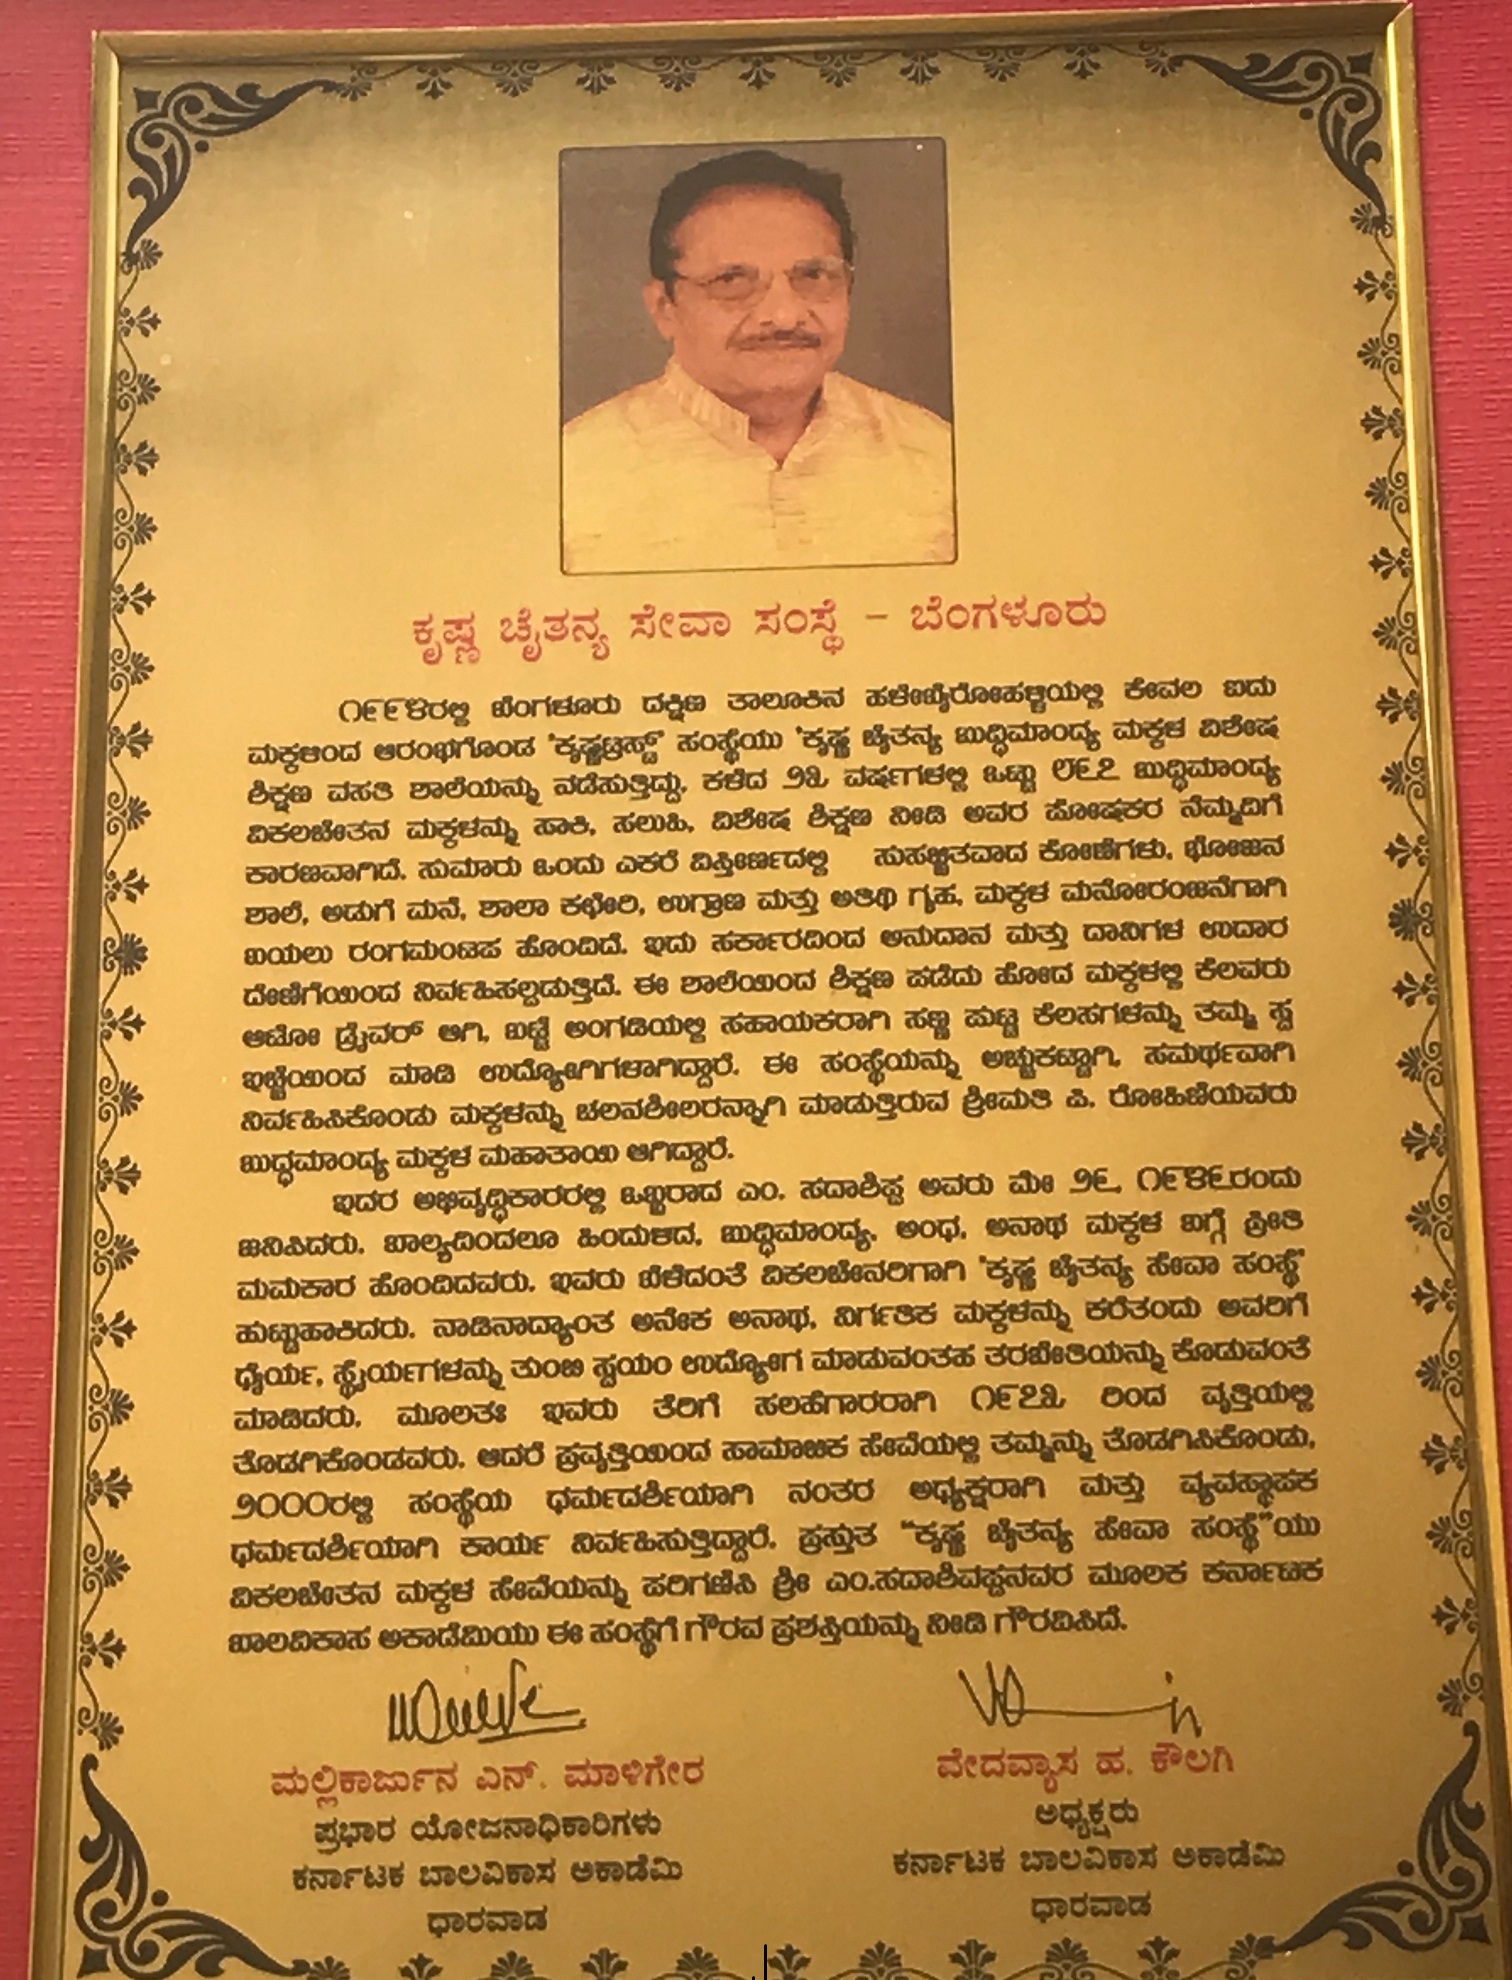 ಕೃಷ್ಣ ಚೈತನ್ಯ ಸೇವಾ ಸಂಸ್ಥೆ – ಬೆಂಗಳೂರು
೧೯೯೪ರಲ್ಲಿ ಬೆಂಗಳೂರು ದಕ್ಷಿಣ ತಾಲೂಕಿನ ಹಳೇಬೈರೋಹಳ್ಳಿಯಲ್ಲಿ ಕೇವಲ ಐದು
ಮಕ್ಕಳಿಂದ ಆರಂಭಗೊಂಡ 'ಕೃಷ್ಣಟ್ರಸ್ಟ್' ಸಂಸ್ಥೆಯು 'ಕೃಷ್ಣ ಚೈತನ್ಯ ಬುದ್ಧಿಮಾಂದ್ಯ ಮಕ್ಕಳ ವಿಶೇಷ
ಶಿಕ್ಷಣ ವಸತಿ ಶಾಲೆಯನ್ನು ನಡೆಸುತ್ತಿದ್ದು, ಕಳೆದ ೨೩ ವರ್ಷಗಳಲ್ಲಿ ಒಟ್ಟು ೮೬೭ ಬುದ್ಧಿಮಾಂದ್ಯ
ವಿಕಲಚೇತನ ಮಕ್ಕಳನ್ನು ಸಾಕಿ, ಸಲುಹಿ, ವಿಶೇಷ ಶಿಕ್ಷಣ ನೀಡಿ ಅವರ ಪೋಷಕರ ನೆಮ್ಮದಿಗೆ
ಕಾರಣವಾಗಿದೆ. ಸುಮಾರು ಒಂದು ಎಕರೆ ವಿಸ್ತೀರ್ಣದಲ್ಲಿ ಸುಸಜ್ಜಿತವಾದ ಕೋಣೆಗಳು, ಭೋಜನ
ಶಾಲೆ, ಅಡುಗೆ ಮನೆ, ಶಾಲಾ ಕಛೇರಿ, ಉಗ್ರಾಣ ಮತ್ತು ಅತಿಥಿ ಗೃಹ, ಮಕ್ಕಳ ಮನೋರಂಜನೆಗಾಗಿ
ಬಯಲು ರಂಗಮಂಟಪ ಹೊಂದಿದೆ. ಇದು ಸರ್ಕಾರದಿಂದ ಅನುದಾನ ಮತ್ತು ದಾನಿಗಳ ಉದಾರ
ದೇಣಿಗೆಯಿಂದ ನಿರ್ವಹಿಸಲ್ಪಡುತ್ತಿದೆ. ಈ ಶಾಲೆಯಿಂದ ಶಿಕ್ಷಣ ಪಡೆದು ಹೋದ ಮಕ್ಕಳಲ್ಲಿ ಕೆಲವರು
ಆಟೋ ಡ್ರೈವರ್ ಆಗಿ, ಬಟ್ಟೆ ಅಂಗಡಿಯಲ್ಲಿ ಸಹಾಯಕರಾಗಿ ಸಣ್ಣ ಪುಟ್ಟ ಕೆಲಸಗಳನ್ನು ತಮ್ಮ ಸ್ವ
ಇಚ್ಛೆಯಿಂದ ಮಾಡಿ ಉದ್ಯೋಗಿಗಳಾಗಿದ್ದಾರೆ. ಈ ಸಂಸ್ಥೆಯನ್ನು ಅಚ್ಚುಕಟ್ಟಾಗಿ, ಸಮರ್ಥವಾಗಿ
ನಿರ್ವಹಿಸಿಕೊಂಡು ಮಕ್ಕಳನ್ನು ಚಲನಶೀಲರನ್ನಾಗಿ ಮಾಡುತ್ತಿರುವ ಶ್ರೀಮತಿ ಪಿ. ರೋಹಿಣಿಯವರು
ಬುದ್ಧಮಾಂದ್ಯ ಮಕ್ಕಳ ಮಹಾತಾಯಿ ಆಗಿದ್ದಾರೆ.
ಇದರ ಅಭಿವೃದ್ಧಿಕಾರರಲ್ಲಿ ಒಬ್ಬರಾದ ಎಂ. ಸದಾಶಿಪ್ಪ ಅವರು ಮೇ ೨೬, ೧೯೪೬ರಂದು
ಜನಿಸಿದರು. ಬಾಲ್ಯದಿಂದಲೂ ಹಿಂದುಳಿದ, ಬುದ್ಧಿಮಾಂದ್ಯ, ಅಂಧ, ಅನಾಥ ಮಕ್ಕಳ ಬಗ್ಗೆ ಪ್ರೀತಿ
ಮಮಕಾರ ಹೊಂದಿದವರು. ಇವರು ಬೆಳೆದಂತೆ ವಿಕಲಚೇನರಿಗಾಗಿ 'ಕೃಷ್ಣ ಚೈತನ್ಯ ಸೇವಾ ಸಂಸ್ಥೆ'
ಹುಟ್ಟುಹಾಕಿದರು. ನಾಡಿನಾದ್ಯಾಂತ ಅನೇಕ ಅನಾಥ, ನಿರ್ಗತಿಕ ಮಕ್ಕಳನ್ನು ಕರೆತಂದು ಅವರಿಗೆ
ಧೈರ್ಯ, ಸ್ಥೈರ್ಯಗಳನ್ನು ತುಂಬಿ ಸ್ವಯಂ ಉದ್ಯೋಗ ಮಾಡುವಂತಹ ತರಬೇತಿಯನ್ನು ಕೊಡುವಂತೆ
ಮಾಡಿದರು. ಮೂಲತಃ ಇವರು ತೆರಿಗೆ ಸಲಹೆಗಾರರಾಗಿ ೧೯೭೩ ರಿಂದ ವೃತ್ತಿಯಲ್ಲಿ
ತೊಡಗಿಕೊಂಡವರು. ಆದರೆ ಪ್ರವೃತ್ತಿಯಿಂದ ಸಾಮಾಜಿಕ ಸೇವೆಯಲ್ಲಿ ತಮ್ಮನ್ನು ತೊಡಗಿಸಿಕೊಂಡು,
೨೦೦೦ರಲ್ಲಿ ಸಂಸ್ಥೆಯ ಧರ್ಮದರ್ಶಿಯಾಗಿ ನಂತರ ಅಧ್ಯಕ್ಷರಾಗಿ ಮತ್ತು ವ್ಯವಸ್ಥಾಪಕ
ಧರ್ಮದರ್ಶಿಯಾಗಿ ಕಾರ್ಯ ನಿರ್ವಹಿಸುತ್ತಿದ್ದಾರೆ. ಪ್ರಸ್ತುತ "ಕೃಷ್ಣ ಚೈತನ್ಯ ಸೇವಾ ಸಂಸ್ಥೆ"ಯು
ವಿಕಲಚೇತನ ಮಕ್ಕಳ ಸೇವೆಯನ್ನು ಪರಿಗಣಿಸಿ ಶ್ರೀ ಎಂ.ಸದಾಶಿವಪ್ಪನವರ ಮೂಲಕ ಕರ್ನಾಟಕ
ಬಾಲವಿಕಾಸ ಅಕಾಡೆಮಿಯು ಈ ಸಂಸ್ಥೆಗೆ ಗೌರವ ಪ್ರಶಸ್ತಿಯನ್ನು ನೀಡಿ ಗೌರವಿಸಿದೆ.
ಮಲ್ಲಿಕಾರ್ಜುನ ಎನ್. ಮಾಳಿಗೇರ
ಪ್ರಭಾರ ಯೋಜನಾಧಿಕಾರಿಗಳು
ಕರ್ನಾಟಕ ಬಾಲವಿಕಾಸ ಅಕಾಡೆಮಿ
ಧಾರವಾಡ
ವೇದವ್ಯಾಸ ಹ. ಕೌಲಗಿ
ಅಧ್ಯಕ್ಷರು
ಕರ್ನಾಟಕ ಬಾಲವಿಕಾಸ ಅಕಾಡೆಮಿ
ಧಾರವಾಡ